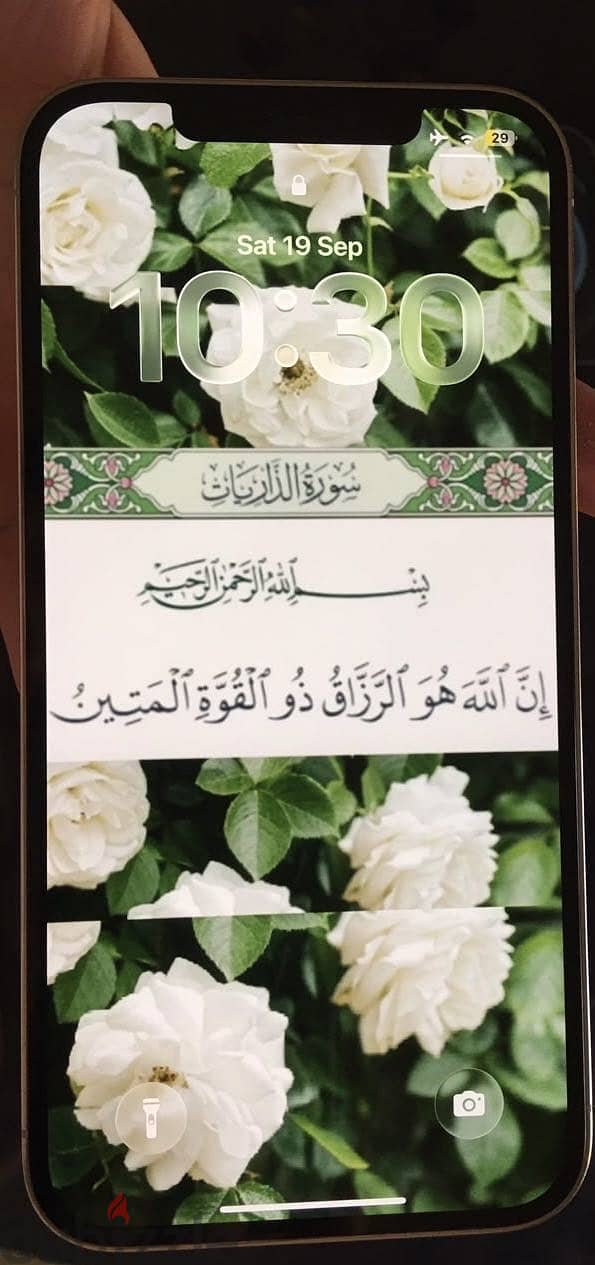 29
Sat 19 Sep
10:30
سُورَةُ الذَّارِيَاتِ
بِسْمِ اللَّهِ الرَّحْمَٰنِ الرَّحِيمِ
إِنَّ ٱللَّهَ هُوَ ٱلرَّزَّاقُ ذُو ٱلْقُوَّةِ ٱلْمَتِينُ